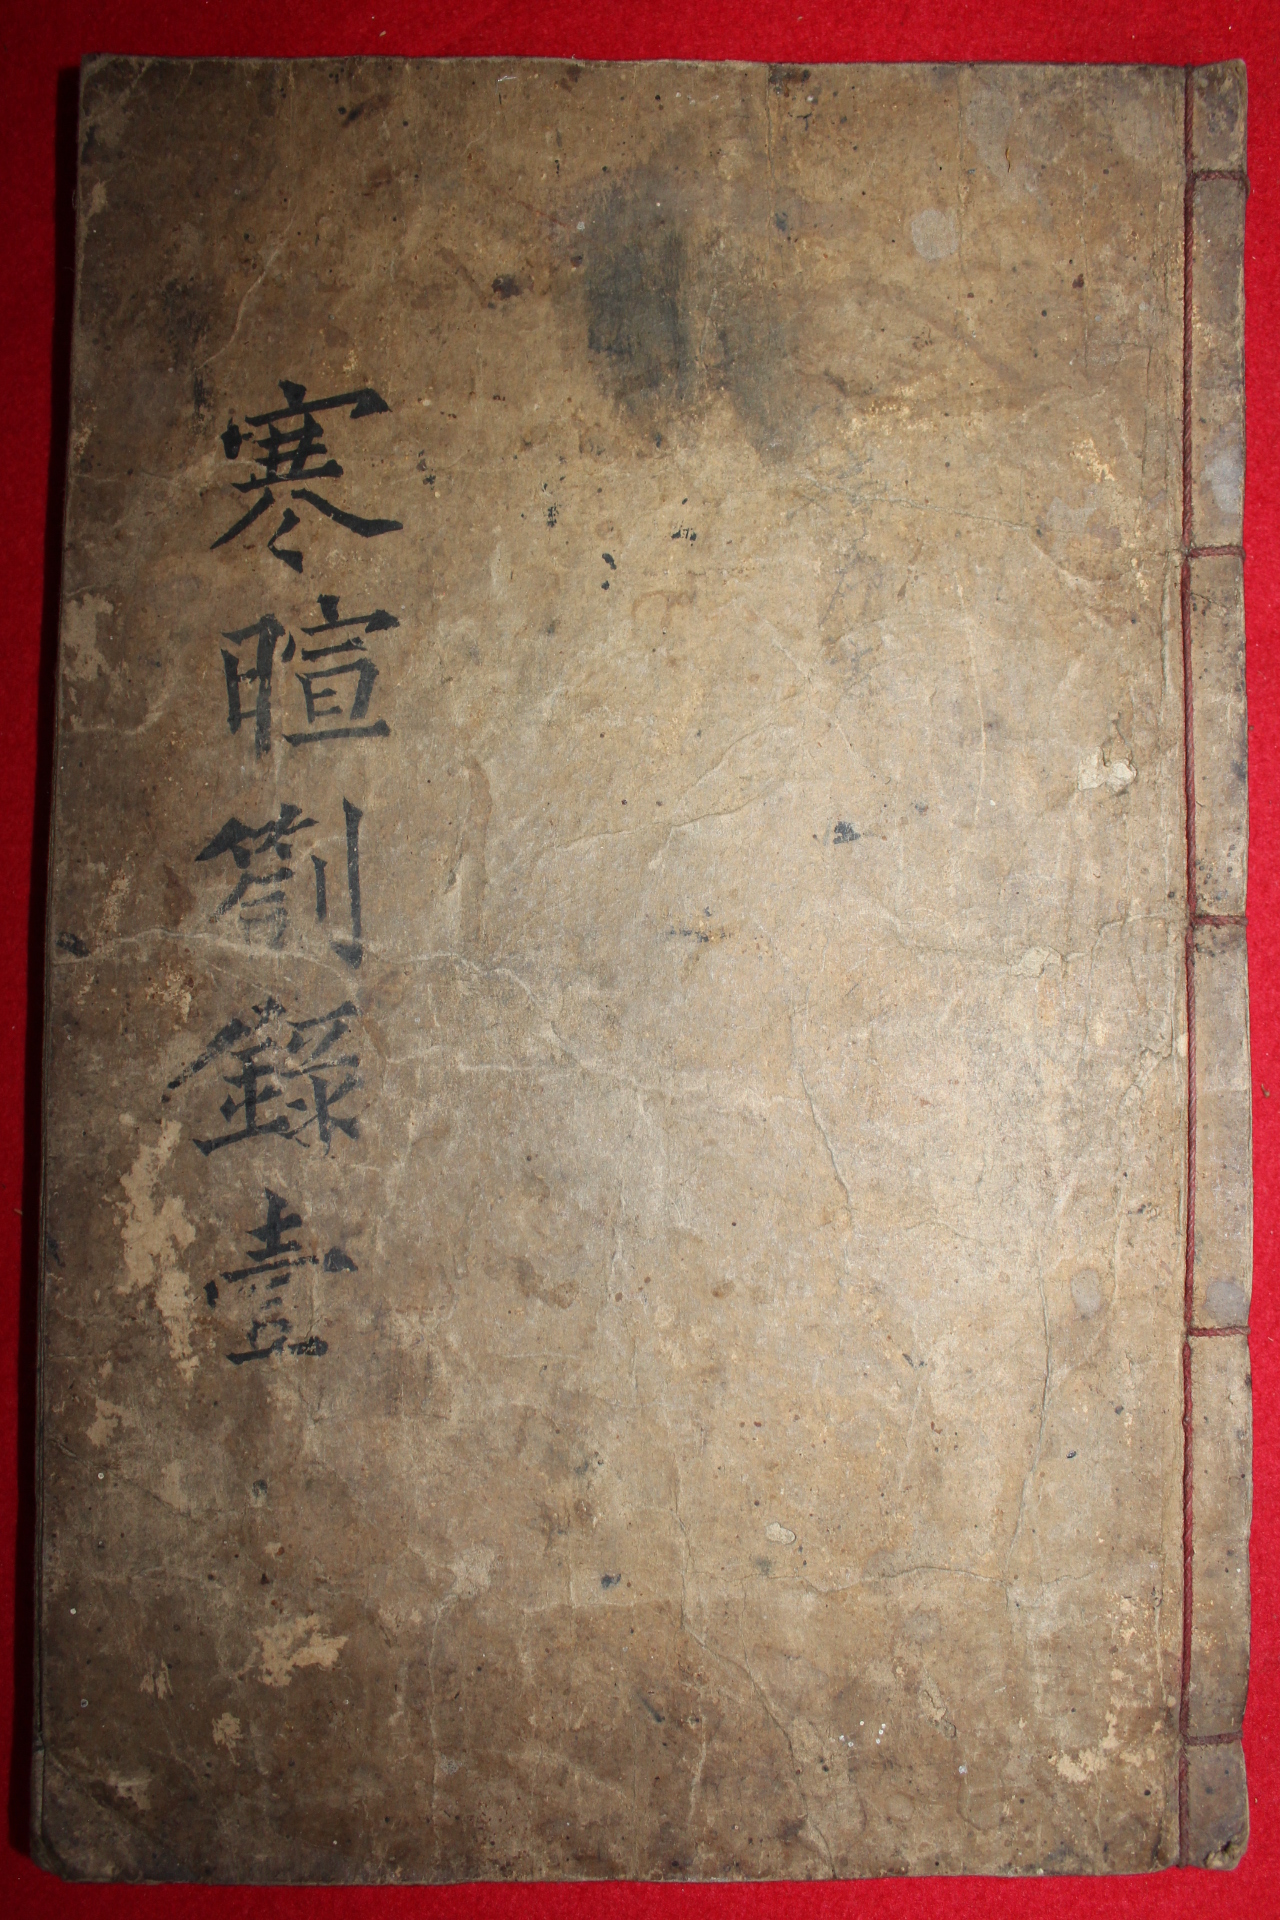 寒暄劄錄壹